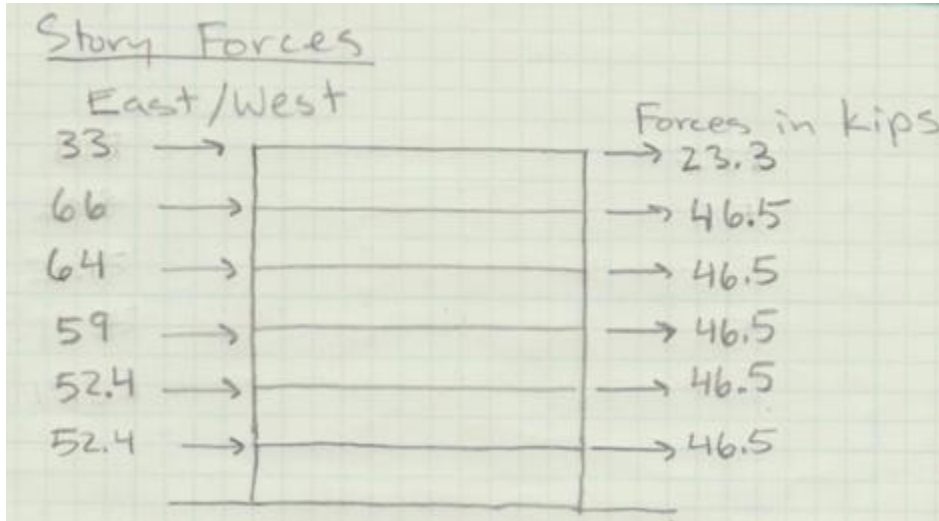 Story Forces
East/West
Forces in kips
33 23.3
66 46.5
64 46.5
59 46.5
52.4 46.5
52.4 46.5